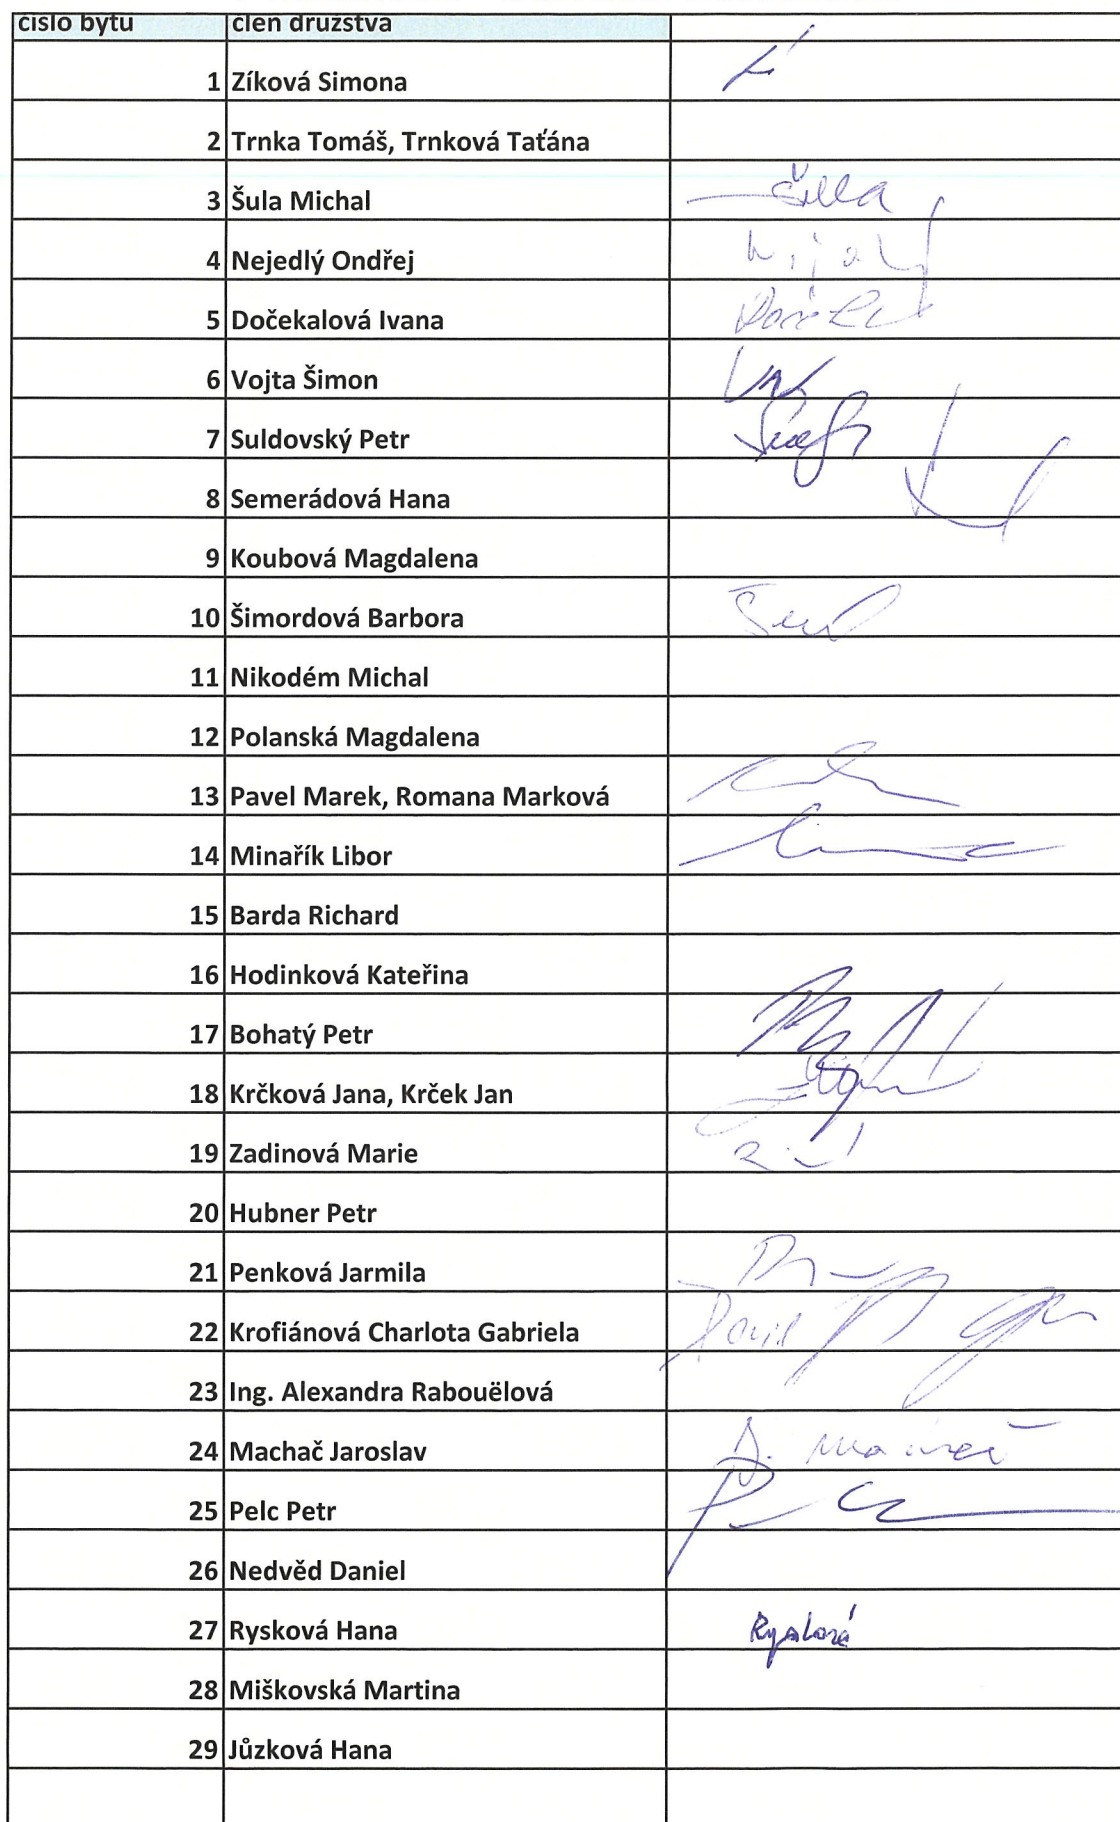 číslo bytu člen družstva
1 Zíková Simona
2 Trnka Tomáš, Trnková Taťána
3 Šula Michal
4 Nejedlý Ondřej
5 Dočekalová Ivana
6 Vojta Šimon
7 Suldovský Petr
8 Semerádová Hana
9 Koubová Magdalena
10 Šimordová Barbora
11 Nikodém Michal
12 Polanská Magdalena
13 Pavel Marek, Romana Marková
14 Minařík Libor
15 Barda Richard
16 Hodinková Kateřina
17 Bohatý Petr
18 Krčková Jana, Krček Jan
19 Zadinová Marie
20 Hubner Petr
21 Penková Jarmila
22 Krofiánová Charlota Gabriela
23 Ing. Alexandra Rabouëlová
24 Machač Jaroslav
25 Pelc Petr
26 Nedvěd Daniel
27 Rysková Hana Rysková
28 Miškovská Martina
29 Jůzková Hana